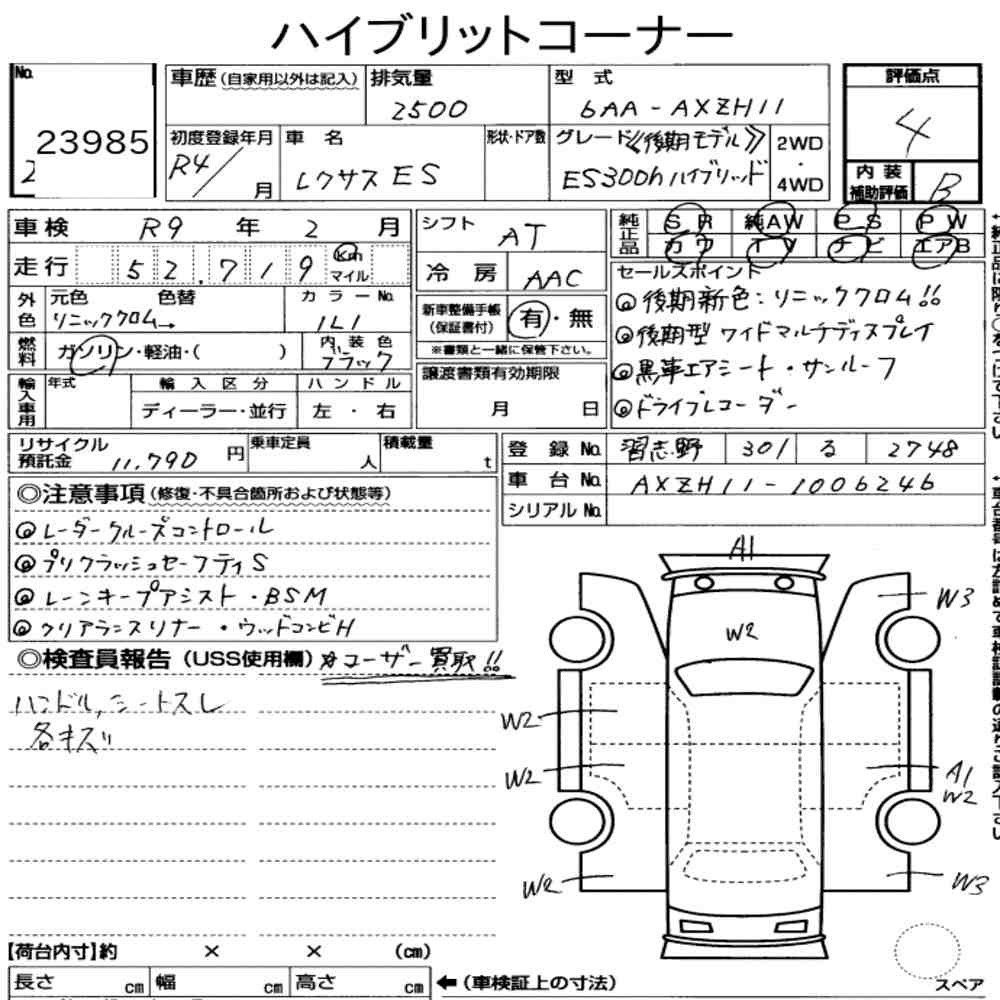 ハイブリットコーナー
No.
23985
2
車歴(自家用以外は記入)
排気量
2500
型式
6AA-AXZH11
評価点
4
内装
補助評価
B
初度登録年月
R4/ 月
車名
レクサス ES
形状・ドア数
グレード 《後期モデル》
ES300h ハイブリッド
2WD
・
4WD
車検 R9 年 2 月
走行 52,719 Km
マイル
シフト AT
冷房 AAC
純正品
SR 純AW PS PW
カワ TV ナビ エアB
外色
元色 色替
リニッククロム→
カラーNo.
1L1
燃料
ガソリン・軽油・( )
内装色
ブラック
新車整備手帳
(保証書付)
有・無
※書類と一緒に保管下さい。
セールスポイント
◎後期新色:リニッククロム!!
◎後期型 ワイドマルチディスプレイ
◎黒革エアシート・サンルーフ
◎ドライブレコーダー
輸入車用
年式
輸入区分
ディーラー・並行
ハンドル
左・右
譲渡書類有効期限
月 日
リサイクル
預託金 11,790 円
乗車定員
人
積載量
t
登録No. 習志野 301 る 2748
車台No. AXZH11-1006246
シリアルNo.
◎注意事項(修復・不具合箇所および状態等)
◎レーダークルーズコントロール
◎プリクラッシュセーフティS
◎レーンキープアシスト・BSM
◎クリアランスソナー・ウッドコンビH
◎検査員報告(USS使用欄)☆ユーザー買取!!
ハンドル,シートスレ
各キズ
A1
W3
W2
W2
W2
A1
W2
W2
W3
【荷台内寸】約 × × (cm)
長さ cm 幅 cm 高さ cm
←(車検証上の寸法)
スペア